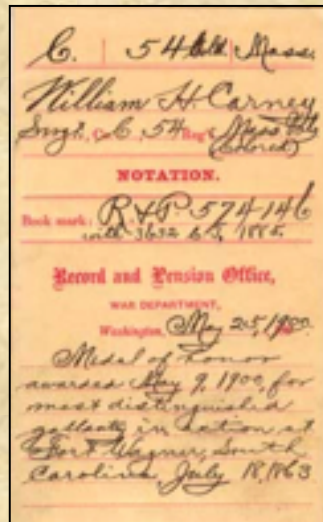 C. 54 Cold. Mass.
William H. Carney
Sergt., Co. C, 54 Reg't Mass. Inf.
(Colored)
NOTATION.
Book mark: R & P. 574146
with 3632 1885.
Record and Pension Office,
WAR DEPARTMENT,
Washington, May 25, 1900.
Medal of honor
awarded May 9, 1900, for
most distinguished
gallantry in action at
Fort Wagner, South
Carolina, July 18, 1863